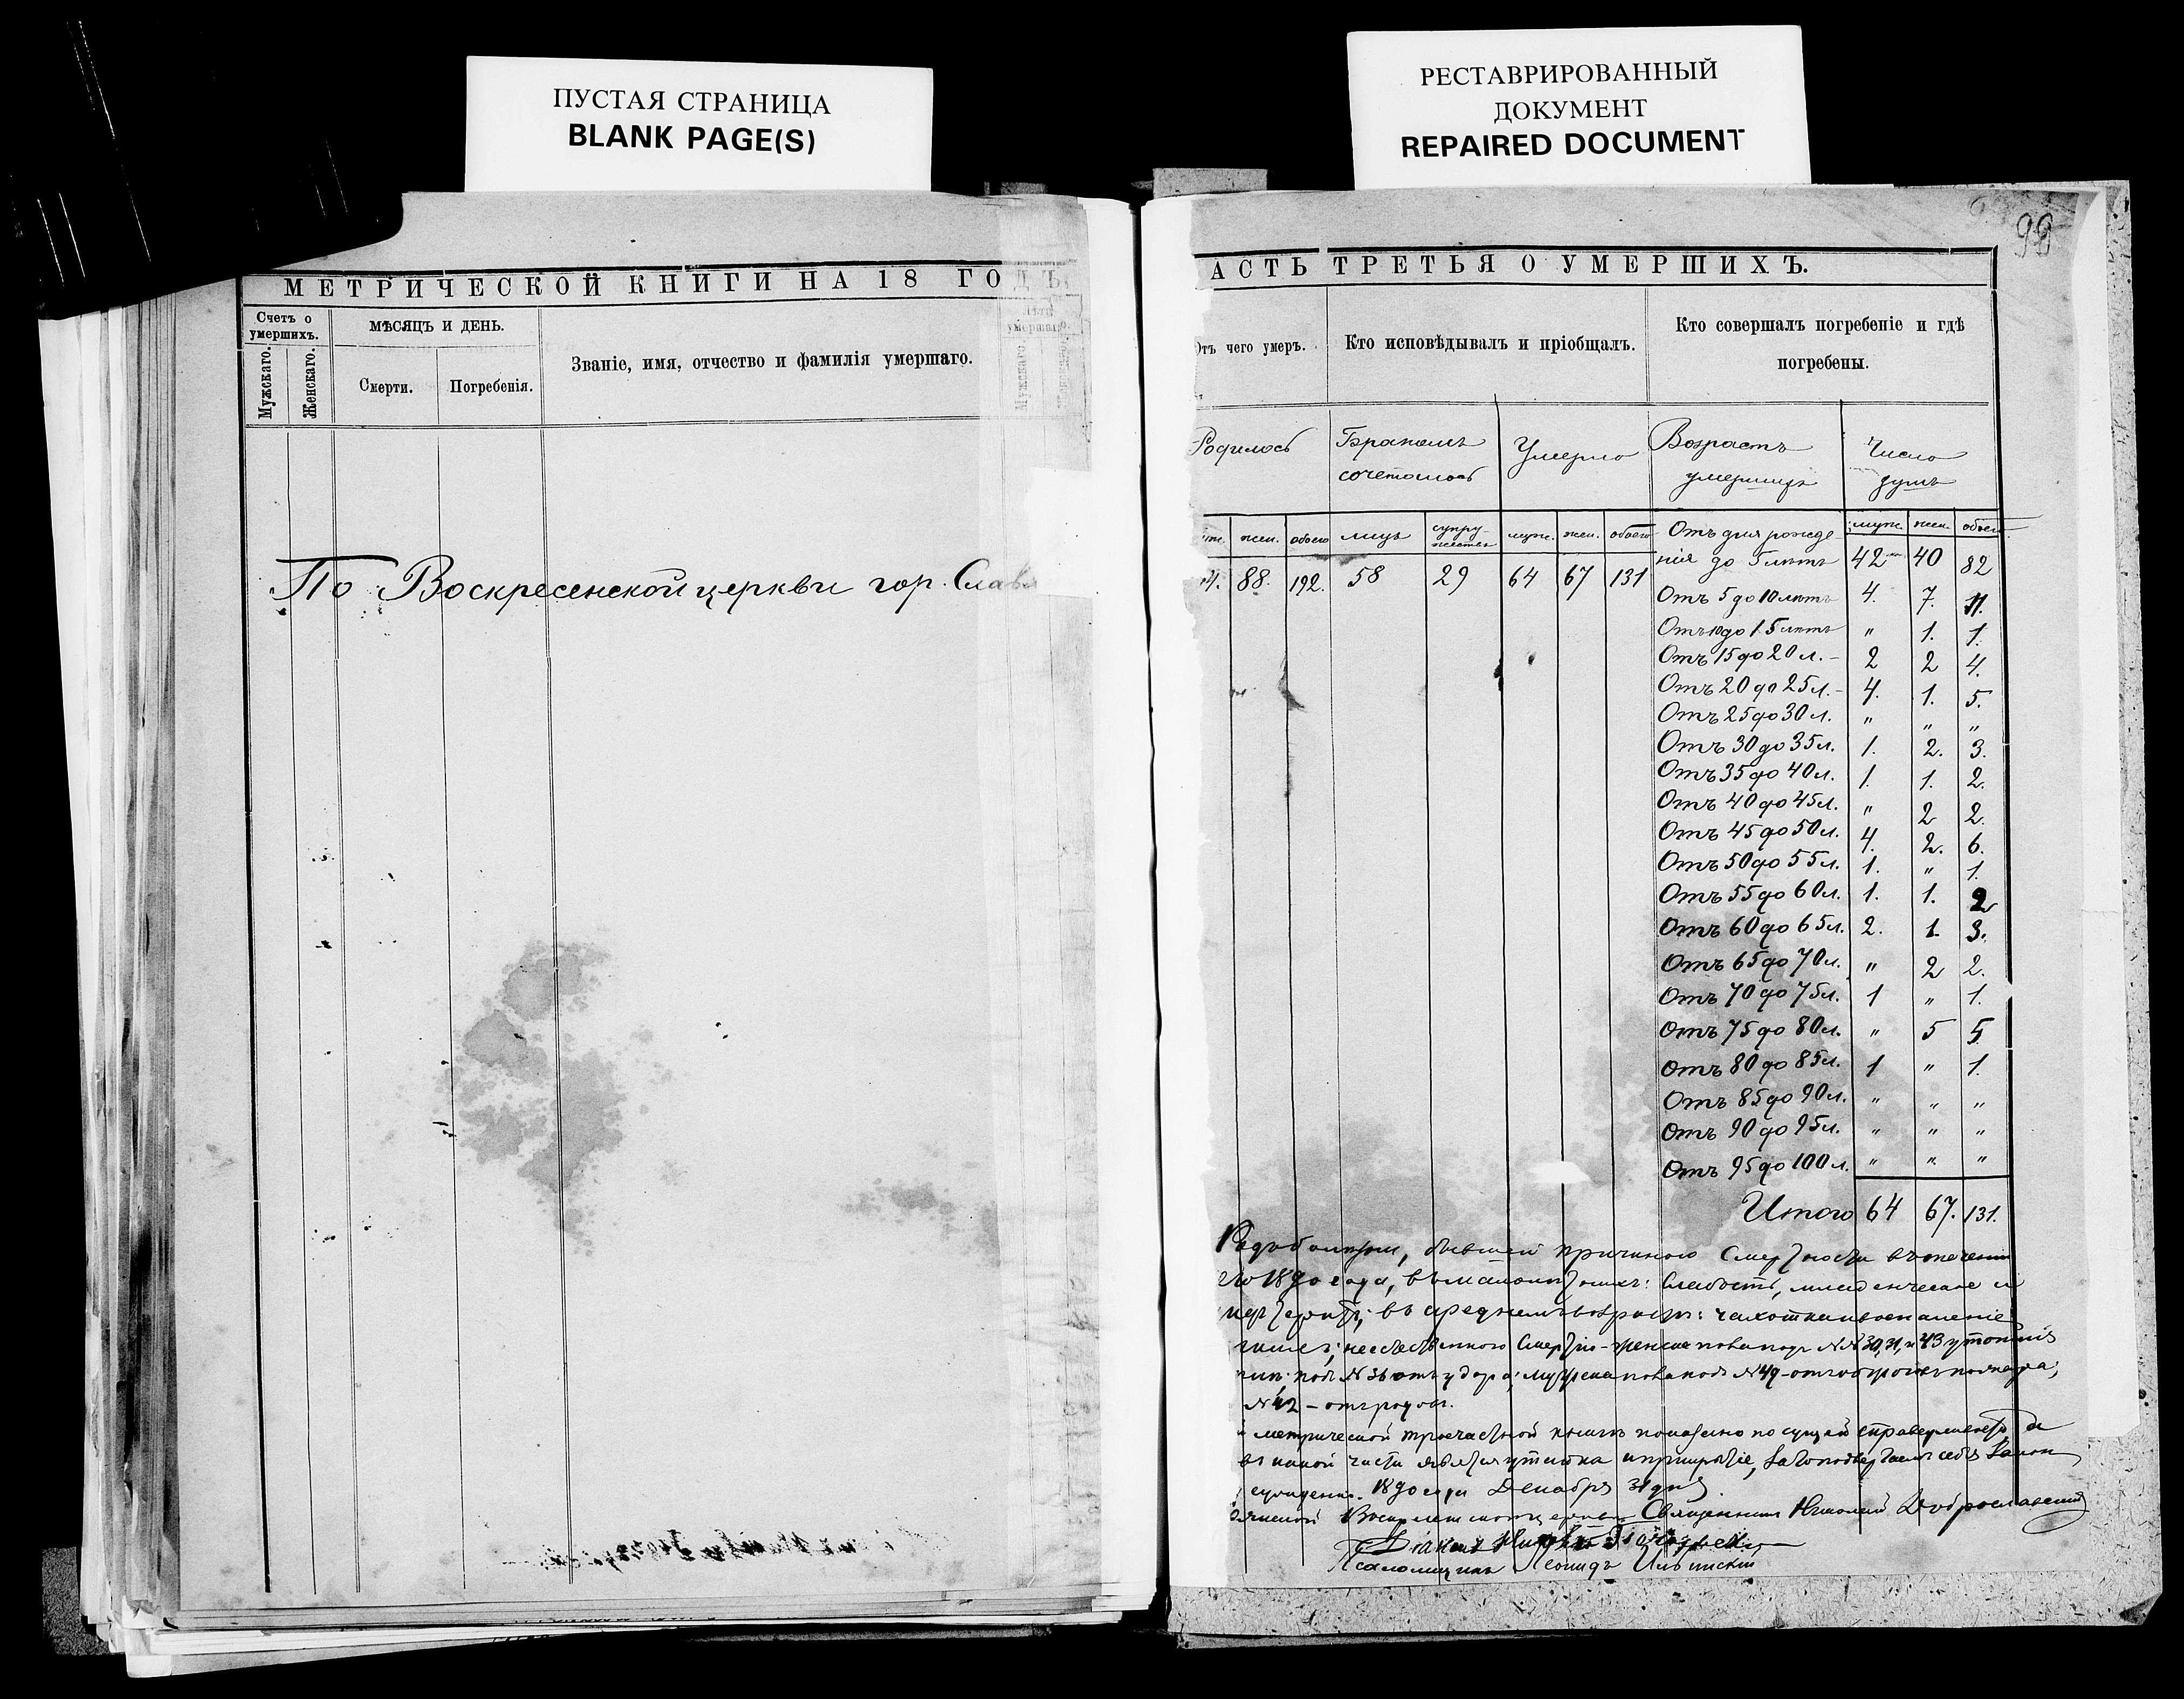 ПУСТАЯ СТРАНИЦА
BLANK PAGE(S)
РЕСТАВРИРОВАННЫЙ
ДОКУМЕНТ
REPAIRED DOCUMENT
МЕТРИЧЕСКОЙ КНИГИ НА 18 ГОДЪ
Счетъ о умершихъ.
Мужскаго.
Женскаго.
МѢСЯЦЪ И ДЕНЬ.
Смерти.
Погребенія.
Званіе, имя, отчество и фамилія умершаго.
Лѣта умершаго.
По Воскресенской церкви гор. Слав
99
АСТЬ ТРЕТЬЯ О УМЕРШИХЪ.
Отъ чего умеръ.
Кто исповѣдывалъ и пріобщалъ.
Кто совершалъ погребеніе и гдѣ погребены.
Родилось
Бракомъ сочеталось
Умерло
Возрастъ умершихъ
Число душъ
жен. обоего лицъ супружествъ муж. жен. обоего муж. жен. обоего
4. 88. 192. 58 29 64 67 131
Отъ дня рожде-
нія до 5 лѣтъ 42 40 82
Отъ 5 до 10 лѣтъ 4. 7. 11.
Отъ 10 до 15 лѣтъ " 1. 1.
Отъ 15 до 20 л. 2 2 4.
Отъ 20 до 25 л. 4. 1. 5.
Отъ 25 до 30 л. " " "
Отъ 30 до 35 л. 1. 2. 3.
Отъ 35 до 40 л. 1. 1. 2.
Отъ 40 до 45 л. " 2 2.
Отъ 45 до 50 л. 4. 2. 6.
Отъ 50 до 55 л. 1. " 1.
Отъ 55 до 60 л. 1. 1. 2
Отъ 60 до 65 л. 2. 1. 3.
Отъ 65 до 70 л. " 2 2.
Отъ 70 до 75 л. 1 " 1.
Отъ 75 до 80 л. " 5 5.
Отъ 80 до 85 л. 1 " 1.
Отъ 85 до 90 л. " " "
Отъ 90 до 95 л. " " "
Отъ 95 до 100 л. " " "
Итого 64 67. 131.
бывшей причиною смертности въ теченіи
1890 года, слабость, младенческое и
въ среднемъ возрастѣ: чахотка воспаленіе
женска пола подъ №№ 30, 31, и 43
подъ № 36 отъ удара; № 49
№ 42 – отъ родовъ.
метрической троечастной книгѣ показано по сущей справедливости
въ какой части явится утайка
1890 года Декабря 31 дня
Воскресенской церкви Священникъ Николай Доброславскій
Діаконъ
Псаломщикъ Леонидъ Ильинскій